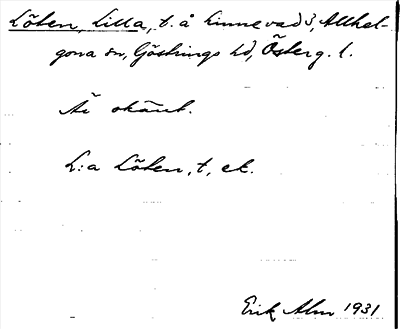 Löten, Lilla, t. å Linnevad 3, Allhel-
gona sn, Göstrings hd, Österg. l.
Är okänt.
L:a Löten, t, ek.
Erik Alm 1931